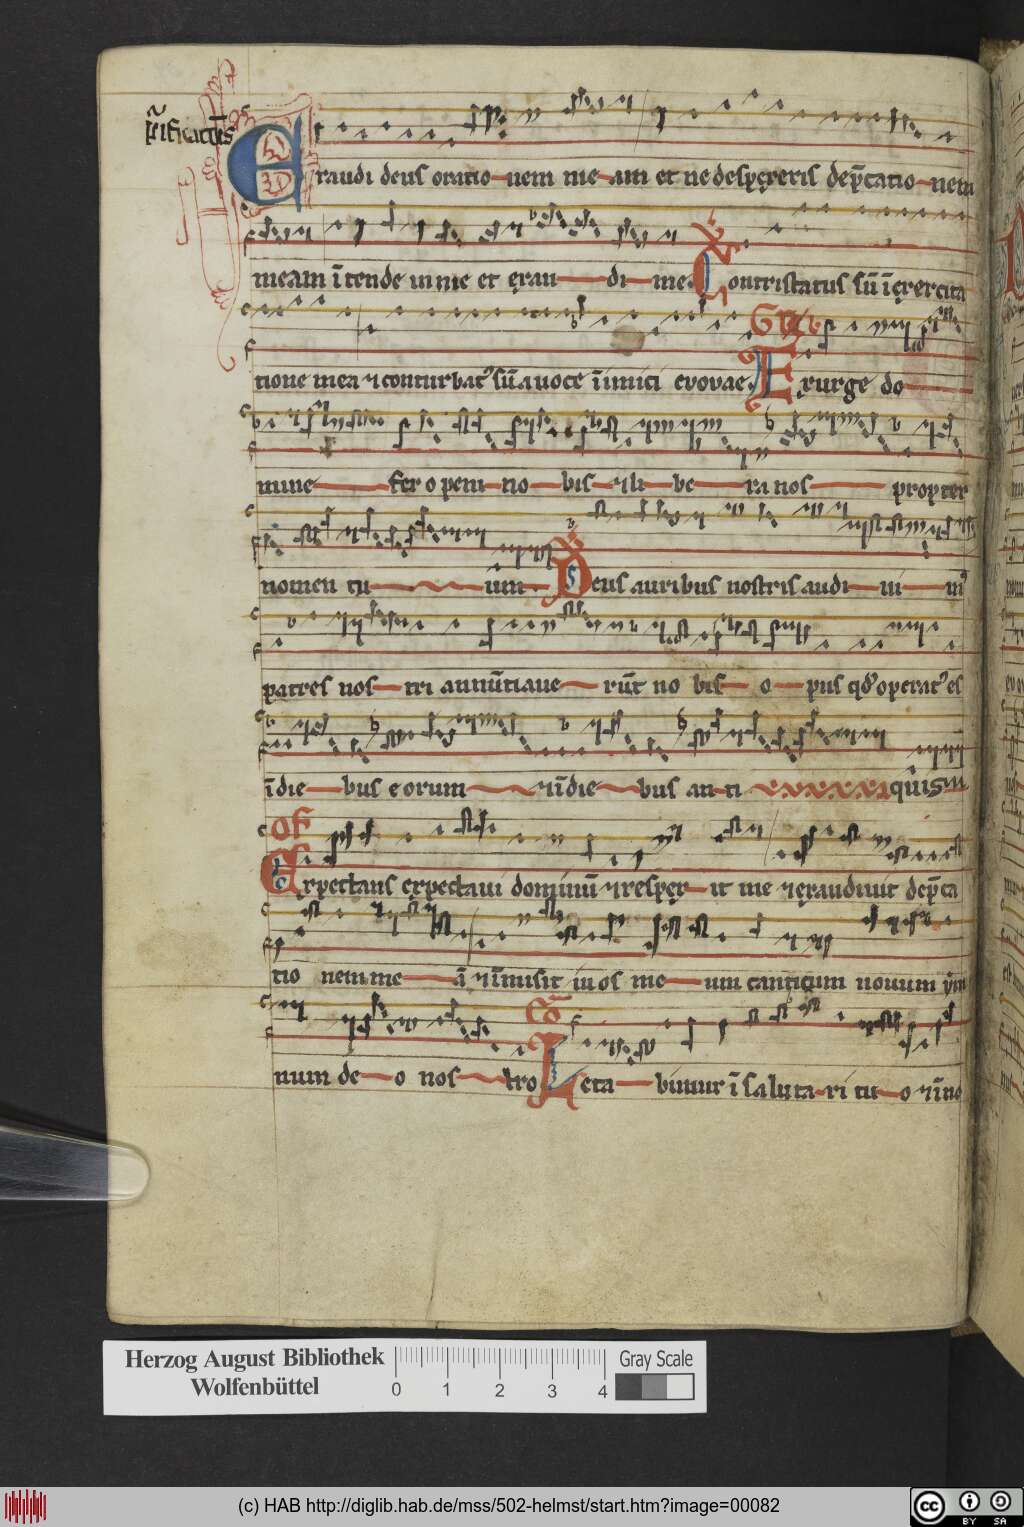 Exaudi deus oratio nem me am et ne despexeris dep̄catio nem
meam ītende in me et exau di me Contristatus sū ī exercita
tione mea ⁊ conturbatꝰ sū a uoce inimici evovae Gr̄ Exurge do
mine fer opem no bis ⁊ li be ra nos propter
nomen tu um V̄ Deus auribus nostris audi ui mꝰ
patres nos tri annūtiaue rūt no bis o pus qd̓ operatꝰ es
ī die bus eorum ⁊ ī die bus an ti quis
Of
Expectans expectaui dominū ⁊ respex it me ⁊ exaudiuit dep̄ca
tio nem me ā ⁊ īmisit in os me um canticum nouum ym
num de o nos tro Cō Leta bimur ī saluta ri tu o ⁊ ī no
Herzog August Bibliothek
Wolfenbüttel
0 1 2 3 4
Gray Scale
(c) HAB http://diglib.hab.de/mss/502-helmst/start.htm?image=00082
cc BY SA